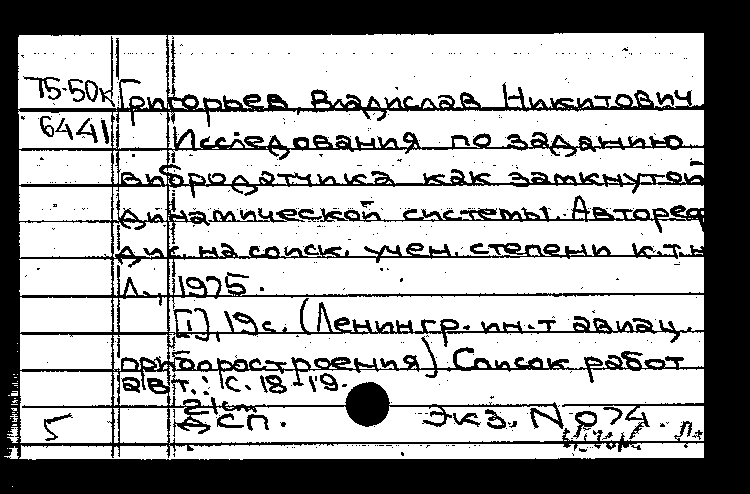 75-50к Григорьев, Владислав Никитович.
6441 Исследования по заданию
вибродатчика как замкнутой
динамической системы. Автореф
дис. на соиск. учен. степени к.т.н
Л., 1975.
[1], 19с. (Ленингр. ин-т авиац.
приборостроения) Список работ
авт.: с. 18-19.
21cm
5 ДСП. Экз. N 074.